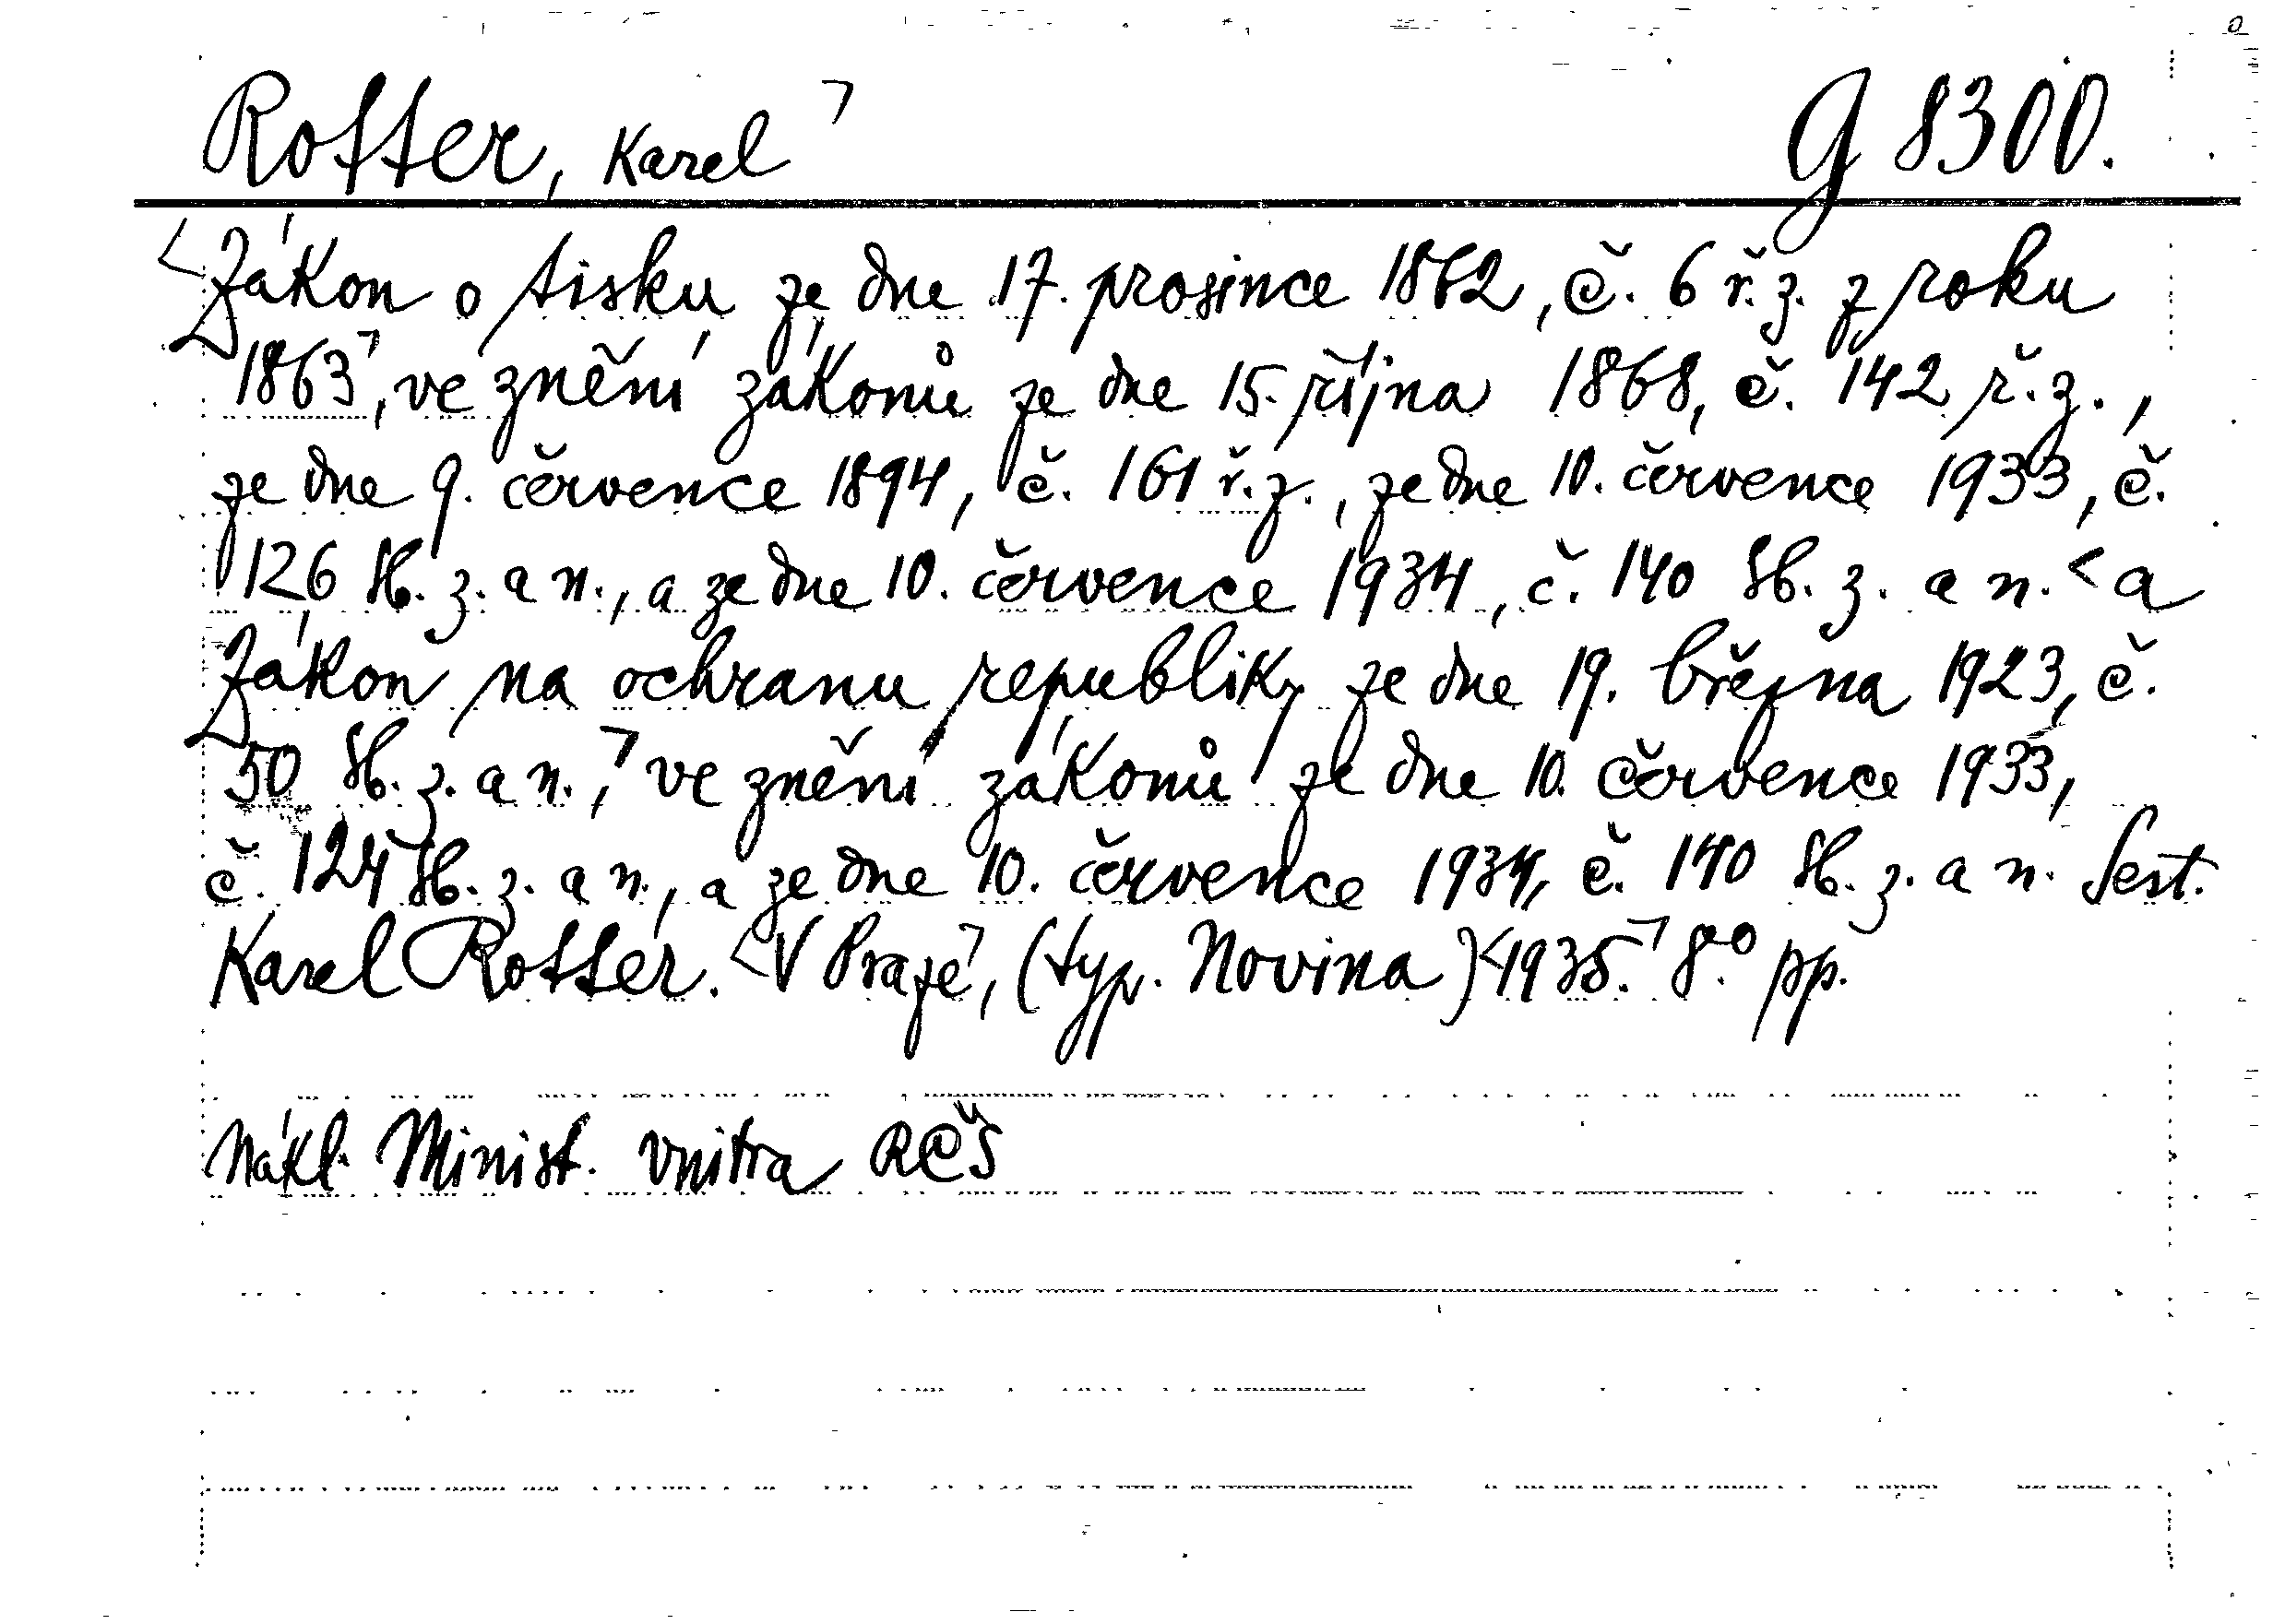 Rotter, Karel G 8300.
Zákon o tisku ze dne 17. prosince 1862, č. 6 ř. z. z roku
1863, ve znění zákonů ze dne 15. října 1868, č. 142 ř. z.,
ze dne 9. července 1894, č. 161 ř. z., ze dne 10. července 1933, č.
126 Sb. z. a n., a ze dne 10. července 1934, č. 140 Sb. z. a n. a
Zákon na ochranu republiky ze dne 19. března 1923, č.
50 Sb. z. a n., ve znění zákonů ze dne 10. července 1933,
č. 124 Sb. z. a n., a ze dne 10. července 1934, č. 140 Sb. z. a n. Sest.
Karel Rotter. V Praze, (typ. Novina) 1935. 8.° pp.
Nákl. Minist. vnitra RČS